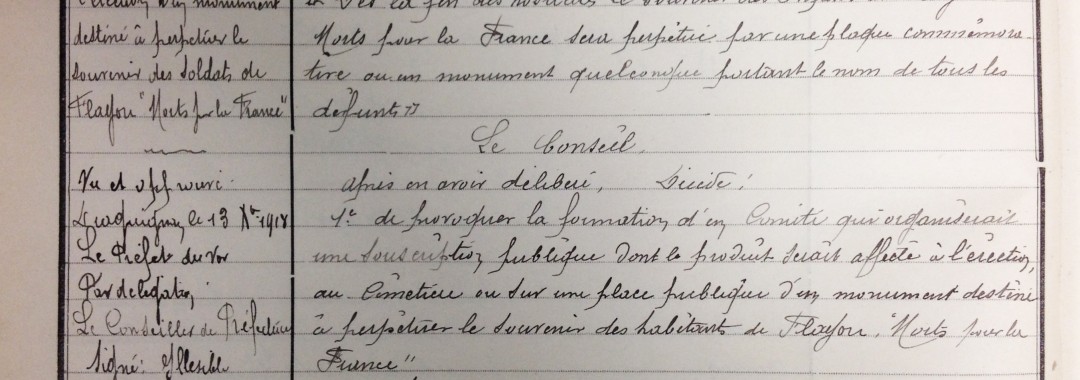 l'érection d'un monument
destiné à perpétuer le
souvenir des soldats de
Flayosc "Morts pr la France"
Vu et approuvé.
Draguignan, le 13 Xbre 1918
Le Préfet du Var
Par délégation,
Le Conseiller de Préfecture
Signé: Illisible
Morts pour la France sera perpétué par une plaque commémora-
tive ou un monument quelconque portant le nom de tous les
défunts"
Le Conseil,
après en avoir délibéré, Décide:
1° de provoquer la formation d'un Comité qui organiserait
une souscription publique dont le produit serait affecté à l'érection,
au Cimetière ou sur une place publique d'un monument destiné
à perpétuer le souvenir des habitants de Flayosc "Morts pour la
France"